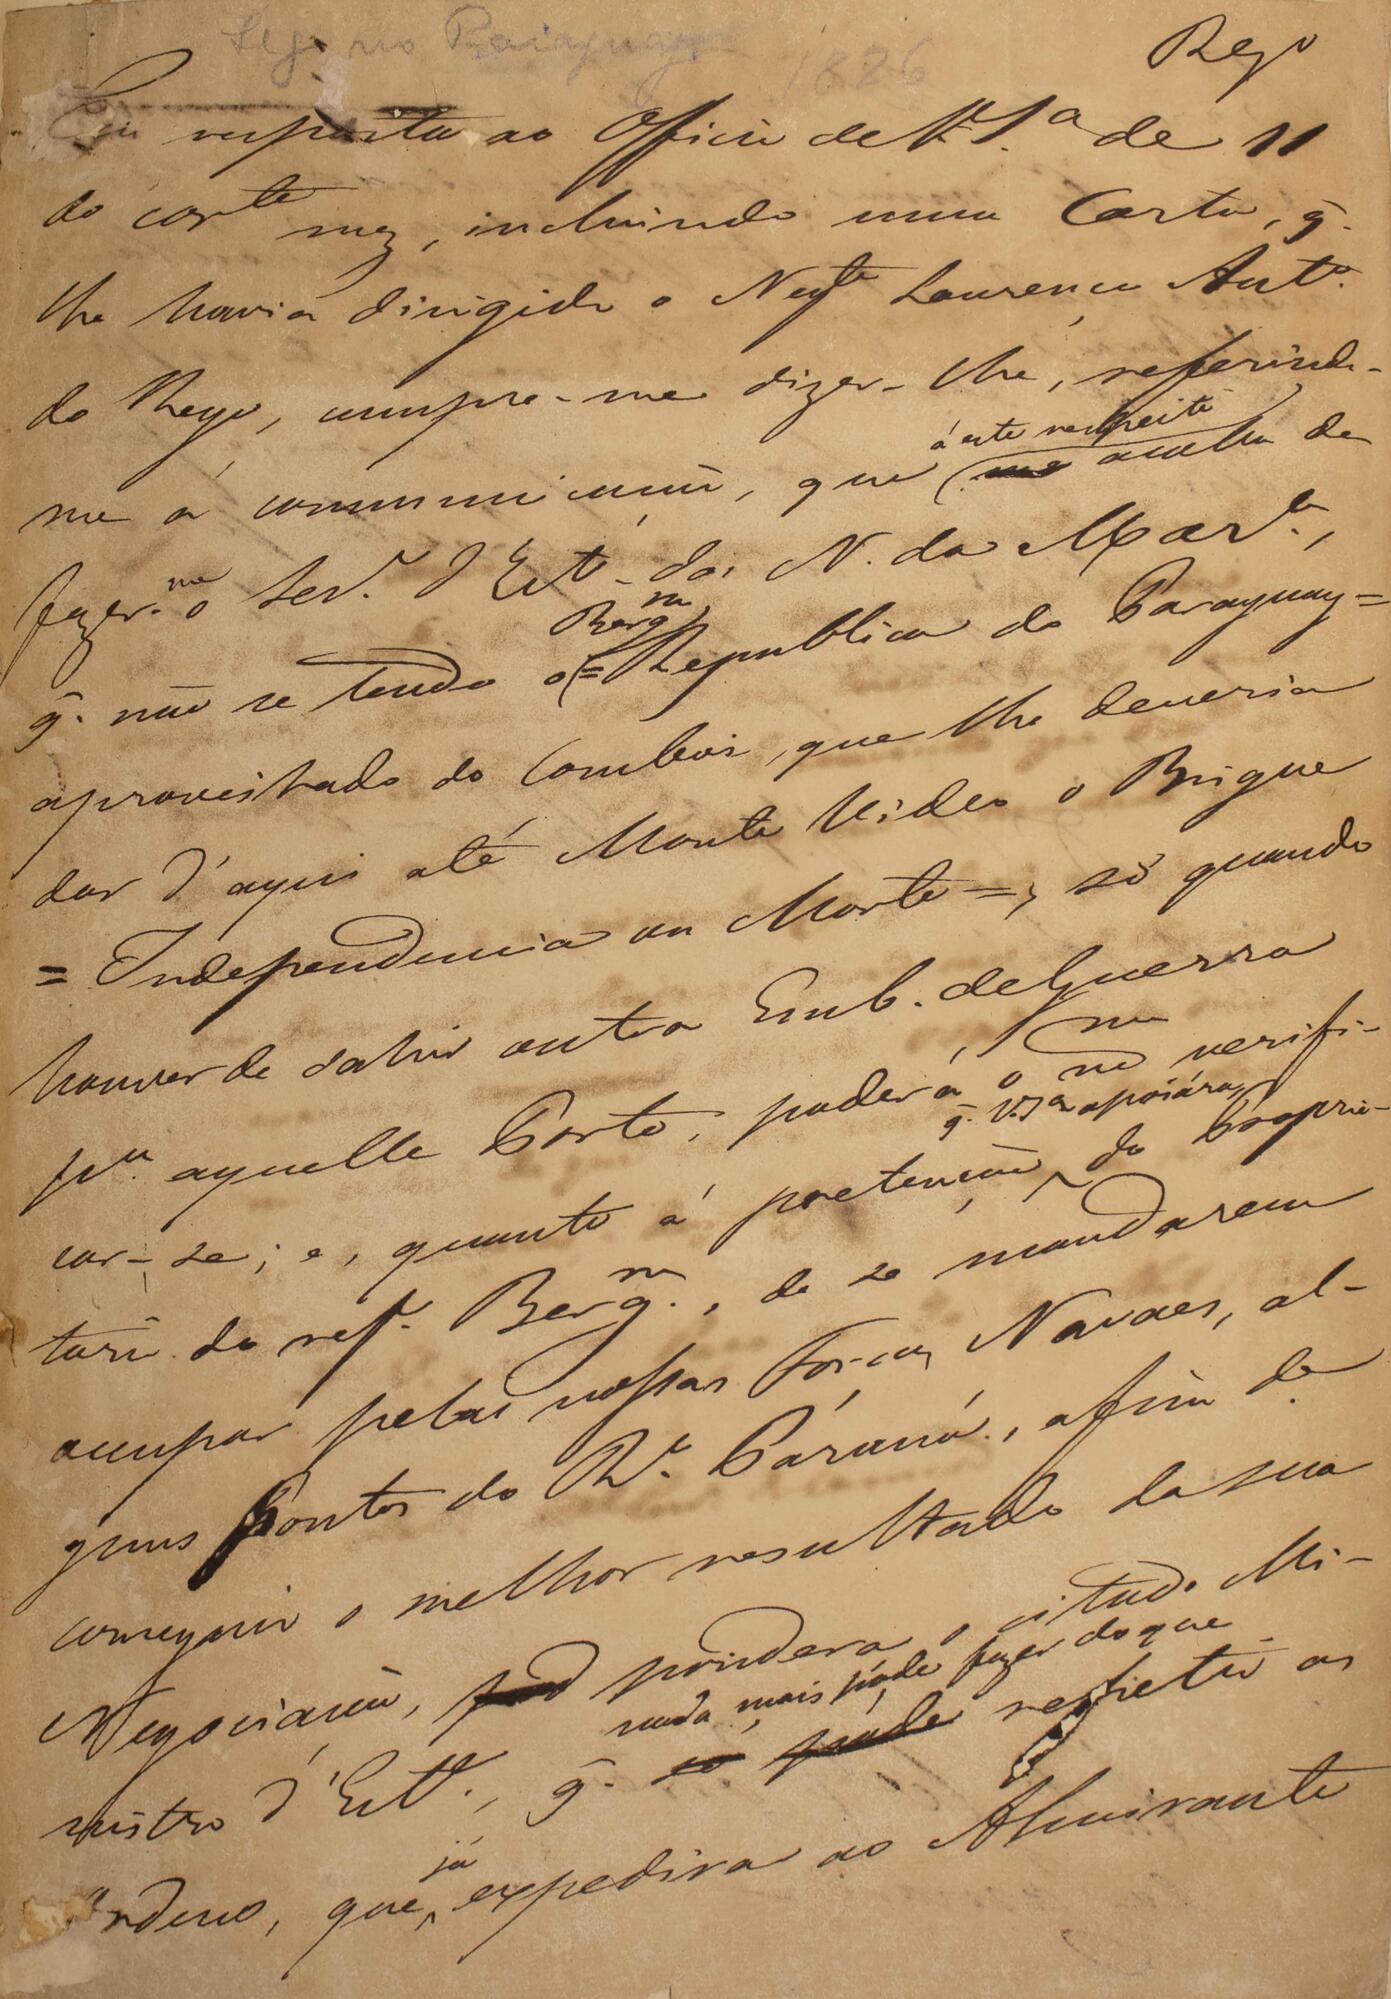 Leg. no Paraguay
1826
Rego
Em resposta ao Officio de V. S.ª de 11
do corr.te mez, incluindo uma Carta, q̃.
lhe havia dirigido o Neg.te Lourenço Ant.º
do Rego, cumpre-me dizer-lhe, referindo-
á este respeito
me á communicação, que acaba de
fazer-me o Secr.º d'Est.º dos N. da Mar.ª,
Berg.m
q̃. não se tendo o = Republica do Paraguay =
aproveitado do Comboi, que lhe deveria
dar d'aqui até Monte Video o Brigue
= Independencia ou Morte =, só quando
houver de sahir outra Emb. de Guerra
p.ª aquelle Porto, poderá o mm.º verifi-
q̃. V. S.ª apoiára,
car-se; e, quanto á pretenção do Proprie-
tario do ref.º Berg.m, de se mandarem
occupar pelas nossas Forças Navaes, al-
guns Pontos do R.º Paraná, afim de
conseguir o melhor resultado da sua
Negociação, pondera o citado Mi-
nada mais póde fazer do que
nistro d'Est.º, q̃. repetir as
já
Ordens, que expedira ao Almirante